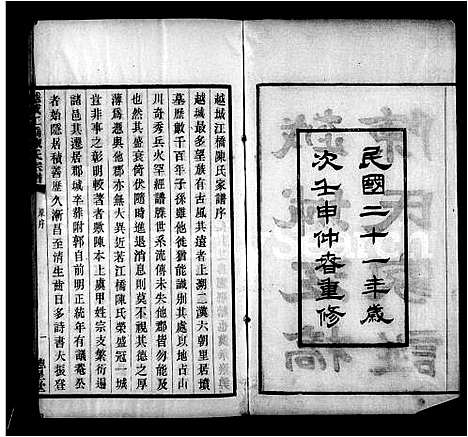 民國二十一年歲
次壬申仲春重修
越城江橋陳氏家譜序
越城最多望族有古風其遠者上溯二漢六朝里居墳
墓歷數千百年子孫雖微猶能識別其處以地占山
川奇秀兵火罕經譜牒世系流傳未失他郡皆勿能及
也然其盛衰倚伏隨時進退消息則莫不視其德之厚
薄為憑與大異近若江橋陳氏榮盛冠一城
豈非事之彰明較著者歟陳本上虞甲姓宗支繁衍遍
諸邑其遷郡城卒葬附郭自前明有以議菴公
者始隱居積善歷久漸昌至清生齒日多詩書大振登
序
一